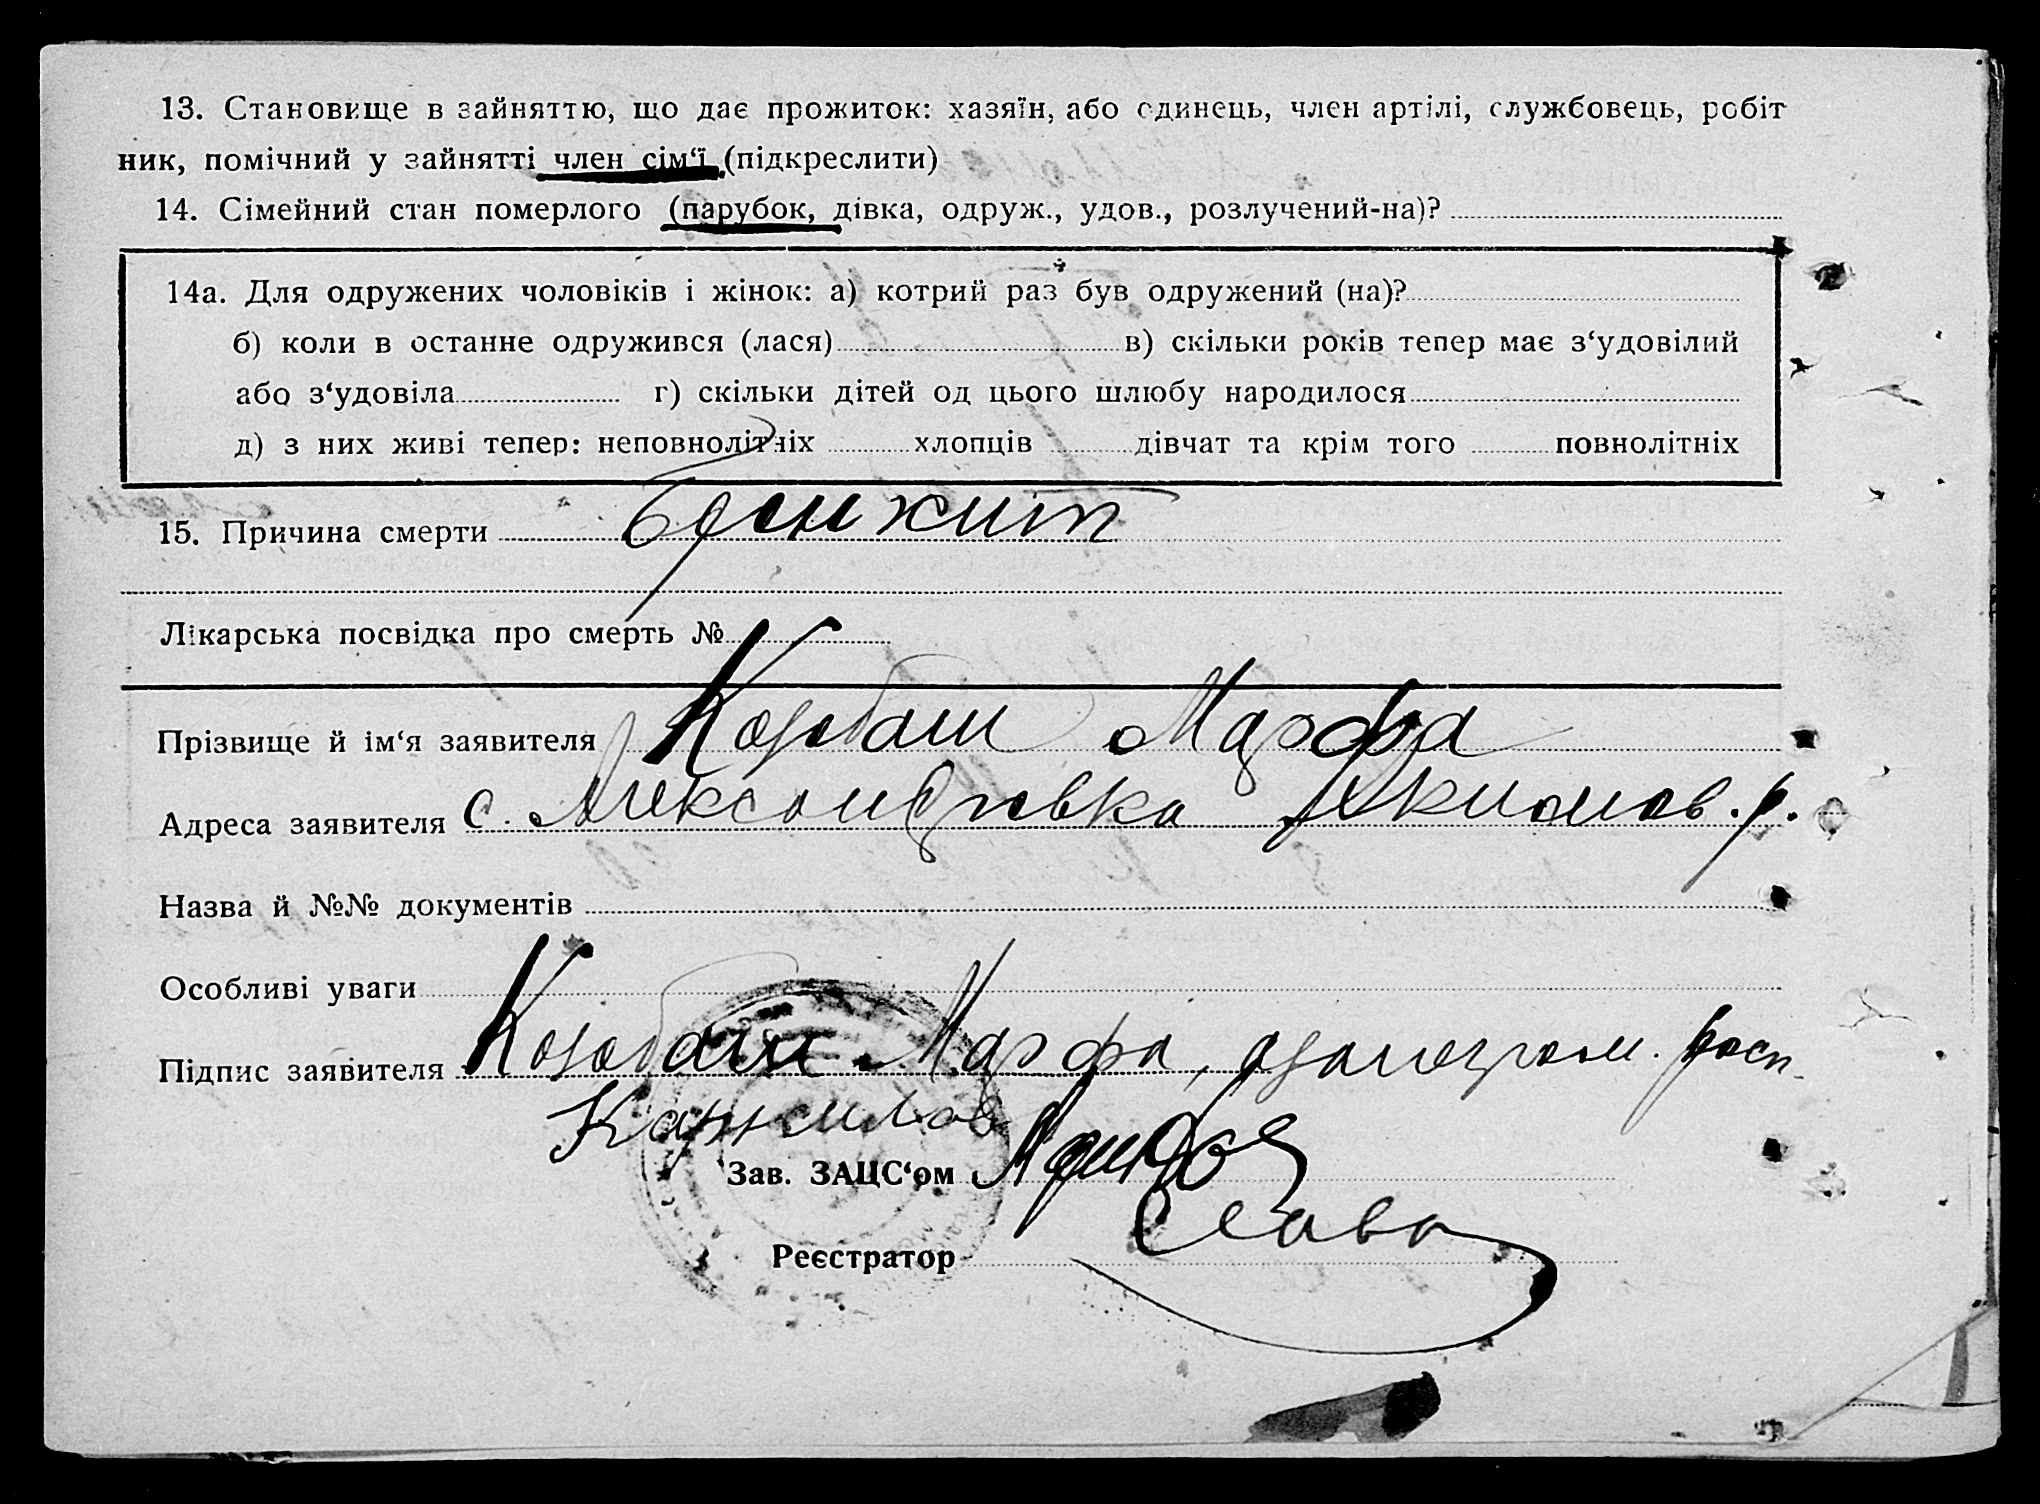 13. Становище в зайняттю, що дає прожиток: хазяїн, або одинець, член артілі, службовець, робіт
ник, помічний у зайнятті член сім‘ї (підкреслити)
14. Сімейний стан померлого (парубок, дівка, одруж., удов., розлучений-на)?
14а. Для одружених чоловіків і жінок: а) котрий раз був одружений (на)?
б) коли в останне одружився (лася) в) скільки років тепер має з‘удовілий
або з‘удовіла г) скільки дітей од цього шлюбу народилося
д) з них живі тепер: неповнолітніх хлопців дівчат та крім того повнолітніх
15. Причина смерти Бронхит
Лікарська посвідка про смерть №
Прізвище й ім‘я заявителя Коробаш Марфа
Адреса заявителя с. Александровка Акимов. р.
Назва й №№ документів
Особливі уваги
Підпис заявителя Коробаш Марфа, расп.
Зав. ЗАЦС‘ом
Реєстратор